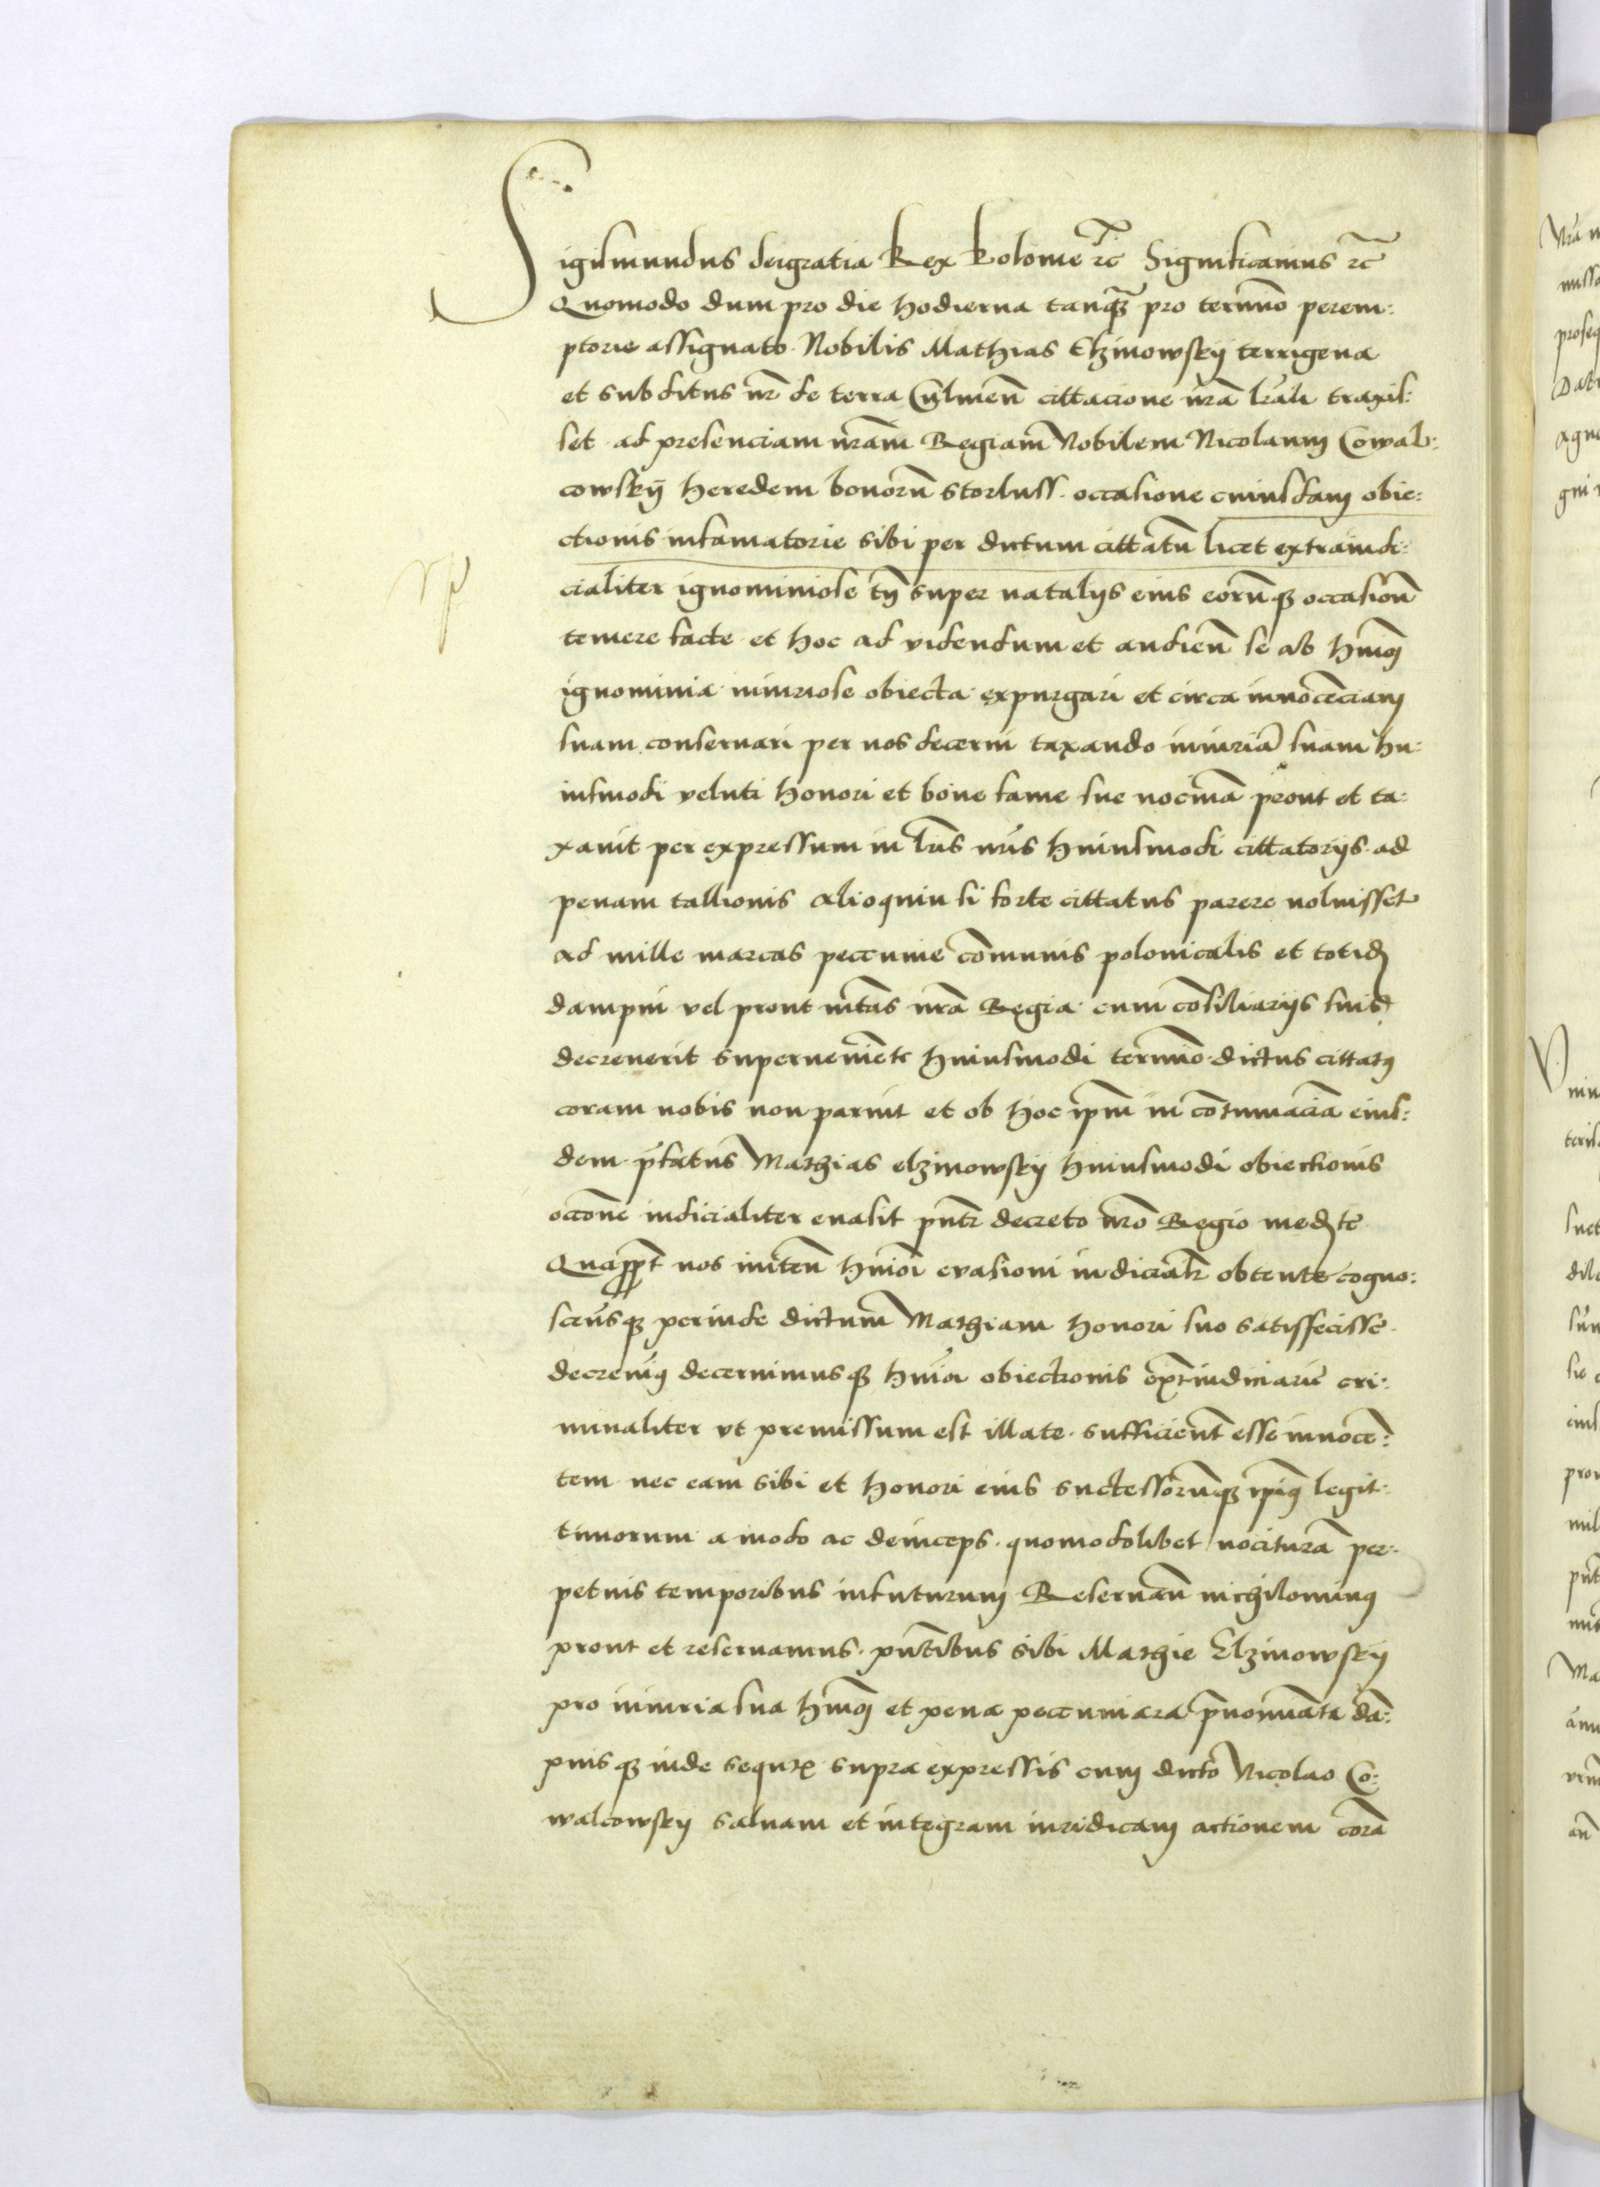 Sigismundus dei gratia Rex Polonie etc̃ Significamus etc̃
Quomodo dum pro die hodierna tanq̃ pro termīo perem:
ptorie assignato Nobilis Mathias Elzmowskij terrigena
et subditus nr̃ de terra Culmeñ cittacione nr̃a lr̃ali traxis:
set ad presenciam nr̃am Regiam Nobilem Nicolaum Cowal:
cowskij heredem bonorū Storluss occasione cuiusdam obie:
ctionis infamatorie sibi per dictum cittatū licet extraiudi:
cialiter ignominiose tñ super natalijs eius eorūq; occasioñ
temere facte et hoc ad videndum et audieñ se ab hmõi
ignominia iniuriose obiecta expurgari et circa innocēciam
suam conseruari per nos decerni taxando iniuriā suam hu:
iusmodi veluti honori et bone fame sue nociuā prout et ta:
xauit per expressum in lr̃is nr̃is huiusmodi cittatorijs ad
penam tallionis alioquin si forte cittatus parere noluisset
ad mille marcas peccunie cōmunis polonicalis et totid̃
dampni vel prout m̃tas nr̃a Regia cum cōsiliarijs suis
decreuerit superueniēte huiusmodi termīo dictus cittatꝯ
coram nobis non paruit et ob hoc ip̃m in cōtumaciā eius:
dem p̃fatus Mathias elzmowskij huiusmodi obiectionis
occõne iudicialiter euasit p̃nti decreto nr̃o Regio med̃te
Quapp̃t nos inītẽn hmõi evasioni iudicialr̃ obtente cogno:
scẽtesq; perinde dictum Mathiam honori suo satisfecisse
decreuimꝯ decernimusq; hmõi obiectionis ext̃iudiciarie cri:
minaliter vt premissum est illate sufficient̃ esse innocē:
tem nec eam sibi et honori eius successorūq; ip̃iꝯ legit:
timorum a modo ac deinceps quomodolibet nocituram per:
petuis temporibus infuturum Reseruañ nichilominꝯ
prout et reseruamus p̃ntibus sibi Mathie Elzmowskij
pro iniuria sua hmõi et pena peccuniara p̃nom̃iata dā:
pnisq; inde sequtꝭ supra expressis cum dicto Nicolao Co:
walcowskij saluam et integram iuridicam actionem corā